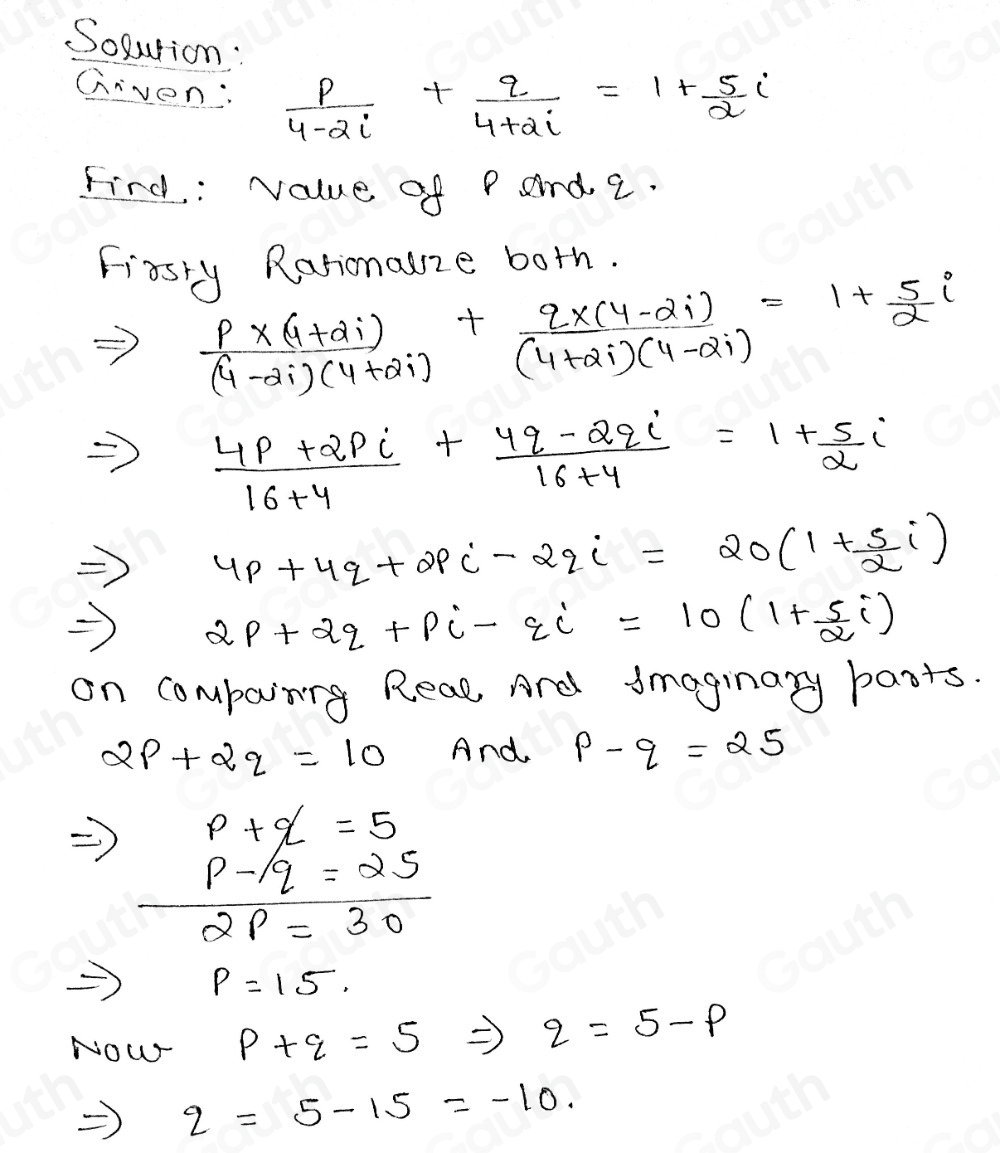 Solution:
Given: P/(4-2i) + q/(4+2i) = 1 + 5/2 i
Find: Value of P and q.
Firsty Rationalize both.
⇒ P×(4+2i)/(4-2i)(4+2i) + q×(4-2i)/(4+2i)(4-2i) = 1 + 5/2 i
⇒ (4P+2Pi)/(16+4) + (4q-2qi)/(16+4) = 1 + 5/2 i
⇒ 4P+4q+2Pi-2qi = 20(1+5/2 i)
⇒ 2P+2q+Pi-qi = 10(1+5/2 i)
on compairing Real And Imaginary parts.
2P+2q = 10 And P-q = 25
⇒ P+q = 5
P-q = 25
2P = 30
⇒ P = 15.
Now P+q = 5 ⇒ q = 5-P
⇒ q = 5-15 = -10.